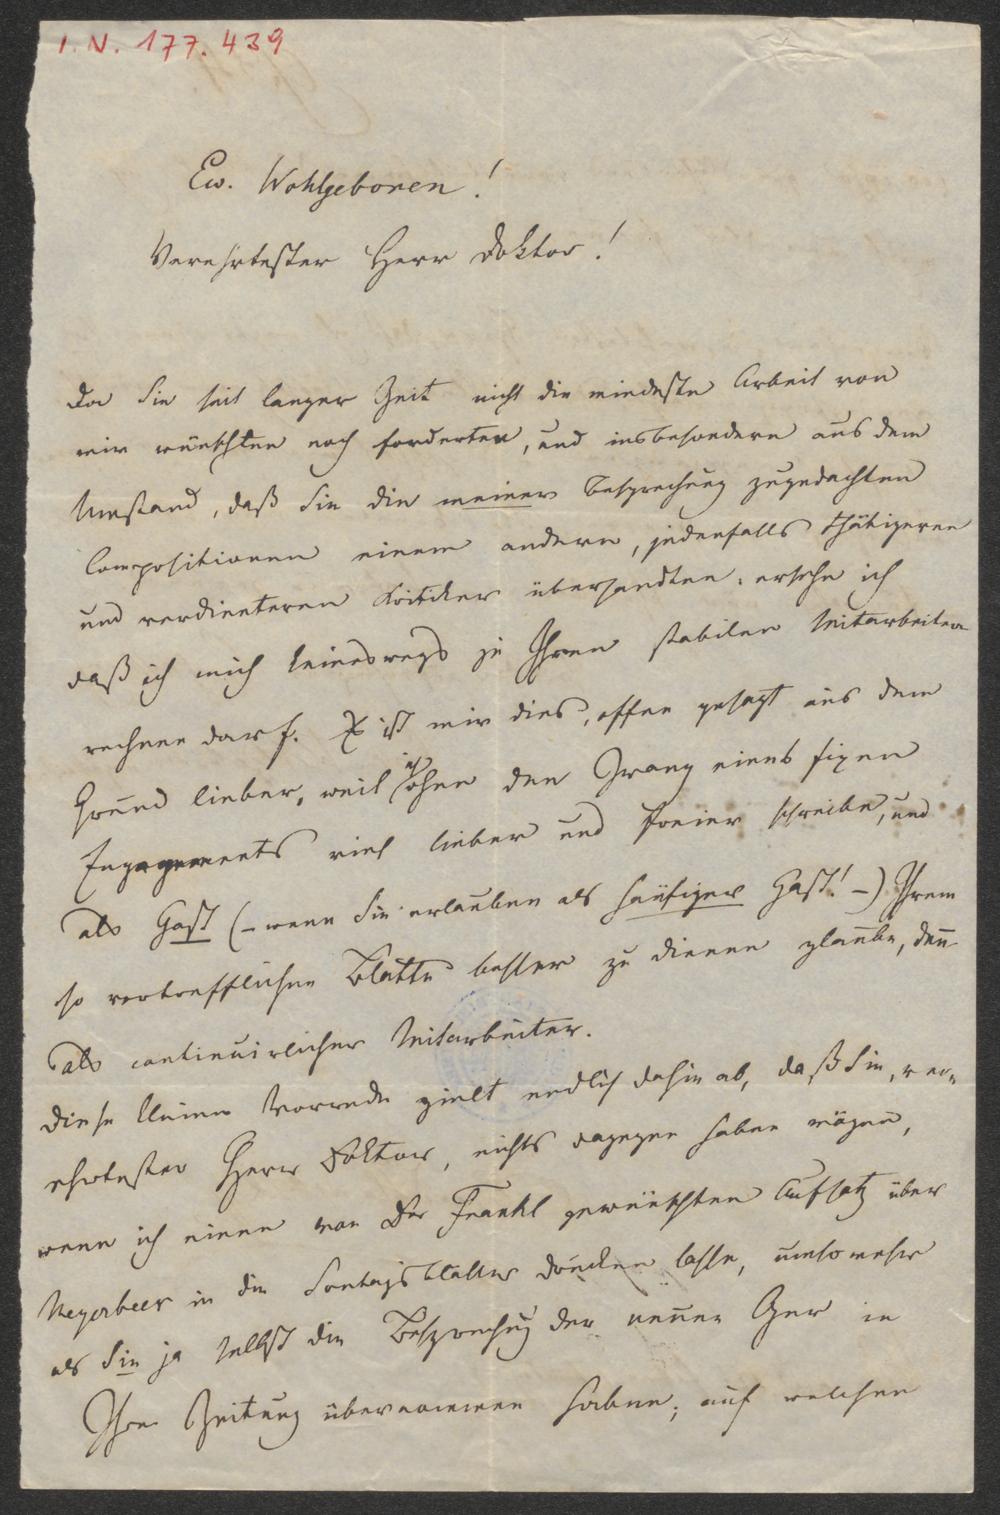 I. N. 177.439
Ew. Wohlgeboren!
Verehrtester Herr Doktor!
Da Sie seit langer Zeit nicht die mindeste Arbeit von
mir wünschten noch forderten, und insbesondere aus dem
Umstand, daß Sie die meiner Besprechung zugedachten
Compositionen einem andern, jedenfalls thätigeren
und verdienteren Kritiker übersandten, ersehe ich
daß ich mich keineswegs zu Ihren stabilen Mitarbeitern
rechnen darf. Es ist mir dies, offen gesagt aus dem
Grund lieber, weil ich ohne den Zwang eines fixen
Engagements viel lieber und freier schreibe, und
als Gast (– wenn Sie erlauben als häufiger Gast! –) Ihrem
so vortrefflichen Blatte besser zu dienen glaube, denn
als continuirlicher Mitarbeiter.
Diese kleine Vorrede zielt endlich dahin ab, daß Sie, ver-
ehrtester Herr Doktor, nichts dagegen haben mögen,
wenn ich einen von Dr Frankl gewünschten Aufsatz über
Meyerbeer in die Sontagsblätter drucken lasse, umsomehr
als Sie ja selbst die Besprechung der neuen Oper in
Ihre Zeitung übernommen haben; auf welchen